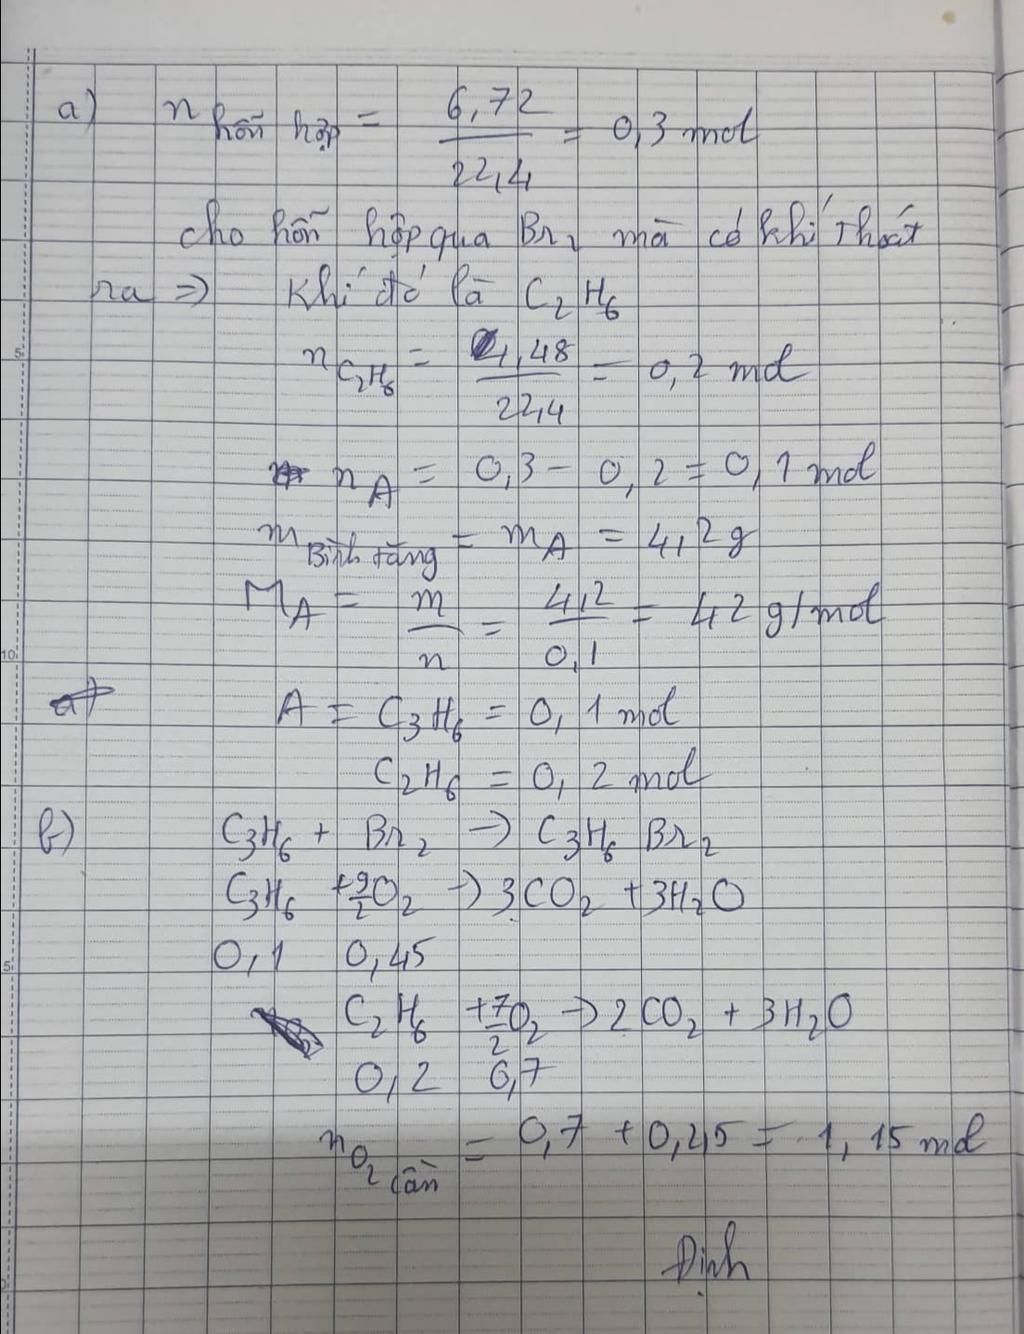 a) n hỗn hợp = 6,72 / 22,4 = 0,3 mol
cho hỗn hợp qua Br₂ mà có khí thoát
ra => Khí đó là C₂H₆
n C₂H₆ = 4,48 / 22,4 = 0,2 mol
n A = 0,3 - 0,2 = 0,1 mol
m Bình tăng = m A = 4,2 g
M A = m / n = 4,2 / 0,1 = 42 g/mol
A = C₃H₆ = 0,1 mol
C₂H₆ = 0,2 mol
b) C₃H₆ + Br₂ -> C₃H₆Br₂
C₃H₆ + 9/2 O₂ -> 3CO₂ + 3H₂O
0,1 0,45
C₂H₆ + 7/2 O₂ -> 2CO₂ + 3H₂O
0,2 0,7
n O₂ cần = 0,7 + 0,45 = 1,15 mol
Định
5
10
5